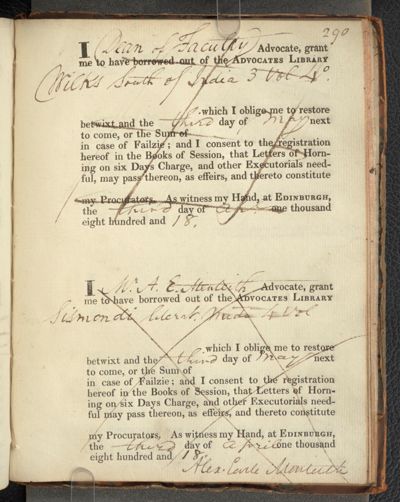 290
I Dean of Faculty Advocate, grant
me to have borrowed out of the ADVOCATES LIBRARY
Wilks South of India 3 vol 4o.
which I oblige me to restore
betwixt and the third day of May next
to come, or the Sum of
in case of Failzie; and I consent to the registration
hereof in the Books of Session, that Letters of Horn-
ing on six Days Charge, and other Executorials need-
ful, may pass thereon, as effeirs, and thereto constitute
my Procurators. As witness my Hand, at EDINBURGH,
the third day of one thousand
eight hundred and 18.
I Mr. A. E. Monteith Advocate, grant
me to have borrowed out of the ADVOCATES LIBRARY
Sismondi literat. 4 vol
which I oblige me to restore
betwixt and the third day of May next
to come, or the Sum of
in case of Failzie; and I consent to the registration
hereof in the Books of Session, that Letters of Horn-
ing on six Days Charge, and other Executorials need-
ful may pass thereon, as effeirs, and thereto constitute
my Procurators. As witness my Hand, at EDINBURGH,
the third day of April one thousand
eight hundred and 18.
Alex. Earle Monteith